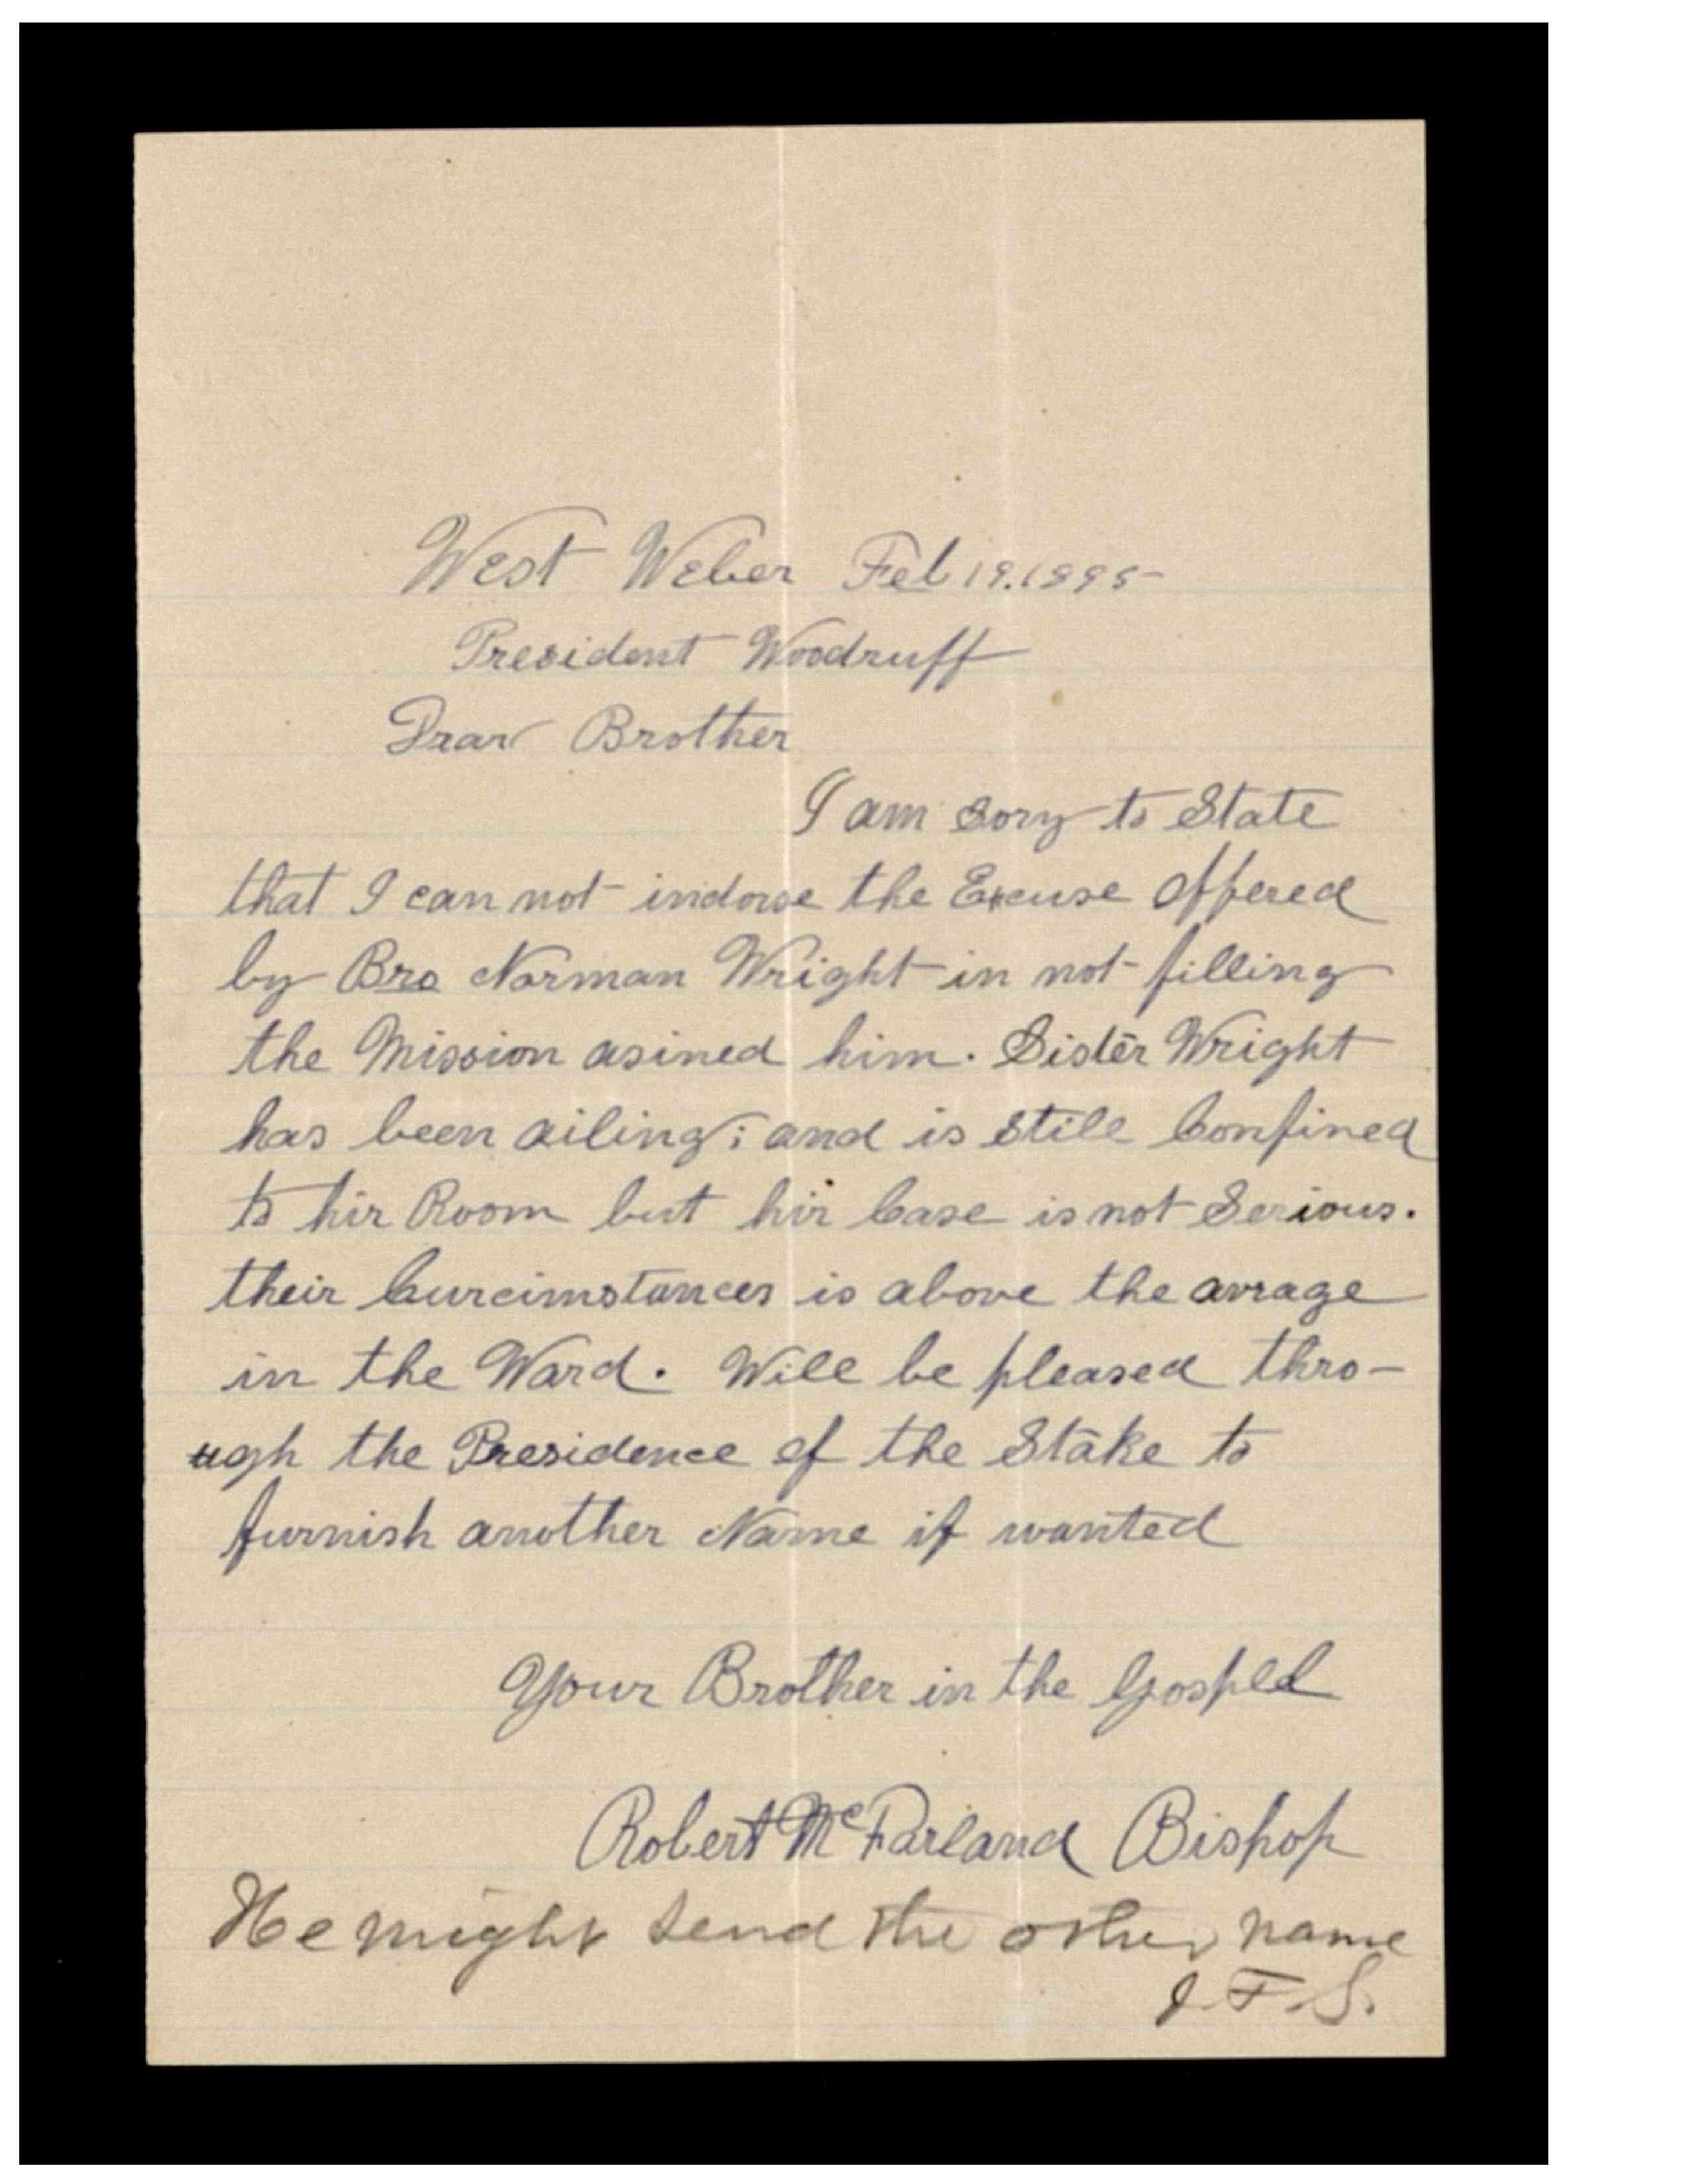 West Weber Feb 19.1895
President Woodruff
Drar Brother
I am sory to State
that I can not indorse the Excuse offered
by Bro Norman Wright in not filling
the Mission asined him. Sister Wright
has been ailing; and is still Confined
to hir Room but hir Case is not Serious.
their Curcimstances is above the avrage
in the Ward. Will be pleased thro-
ugh the Presidence of the Stake to
furnish another Name if wanted
Your Brother in the Gospel
Robert McFarland Bishop
He might send the other name
J.F.S.